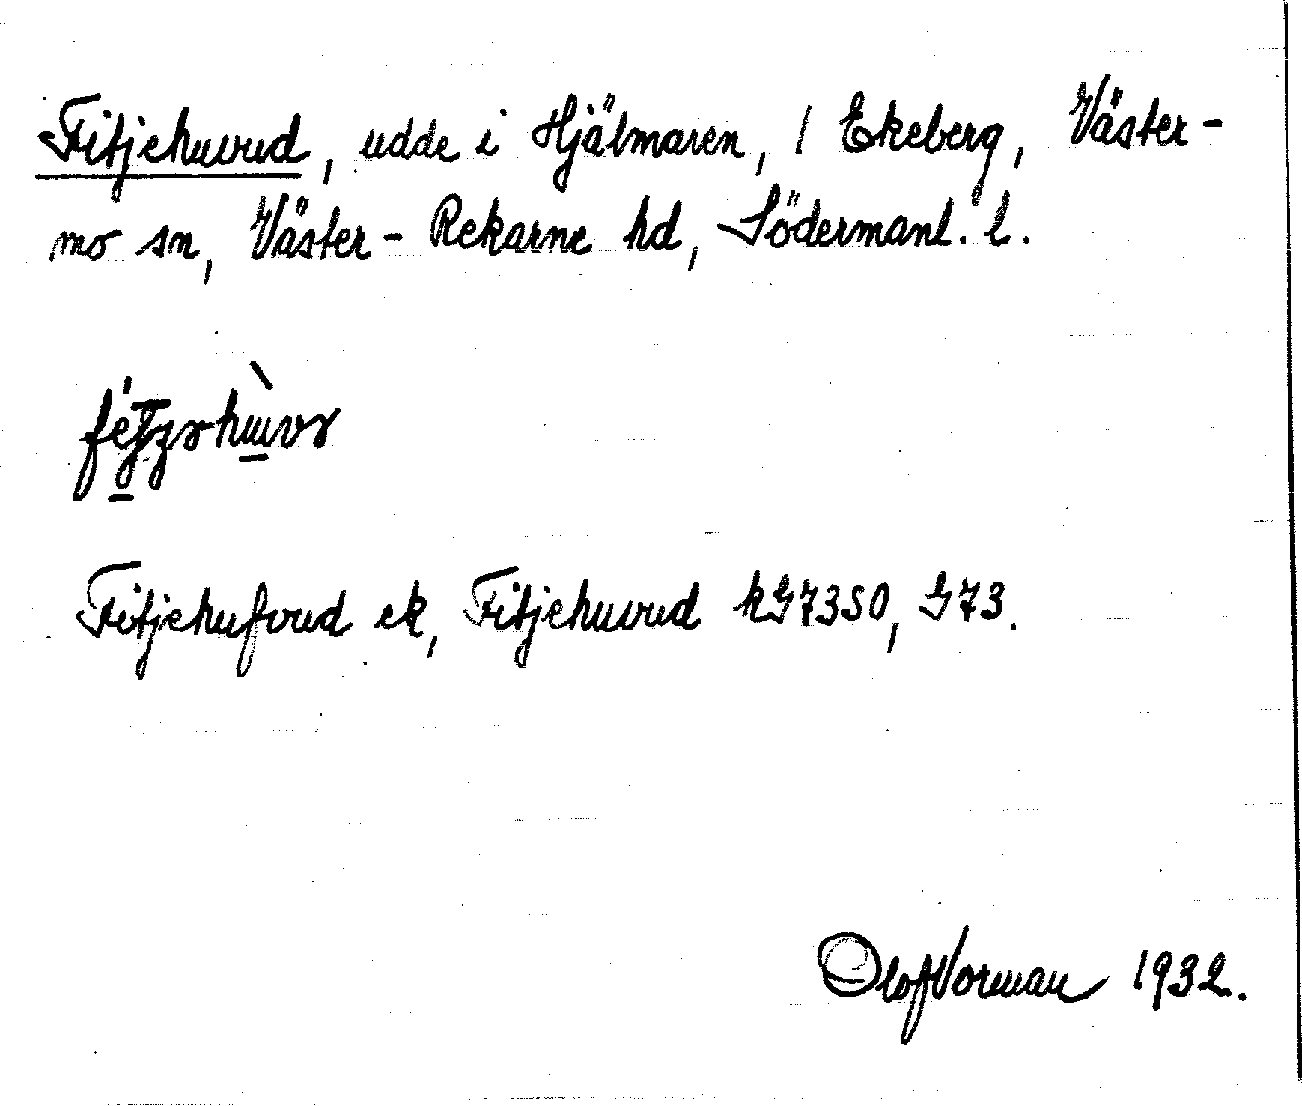 Fitjehuvud, udde i Hjälmaren, 1 Ekeberg, Väster-
mo sn, Väster-Rekarne hd, Södermanl. l.
Fitjehufvud ek, Fitjehuvud kG73SO, G73.
Olof Vorman 1932.